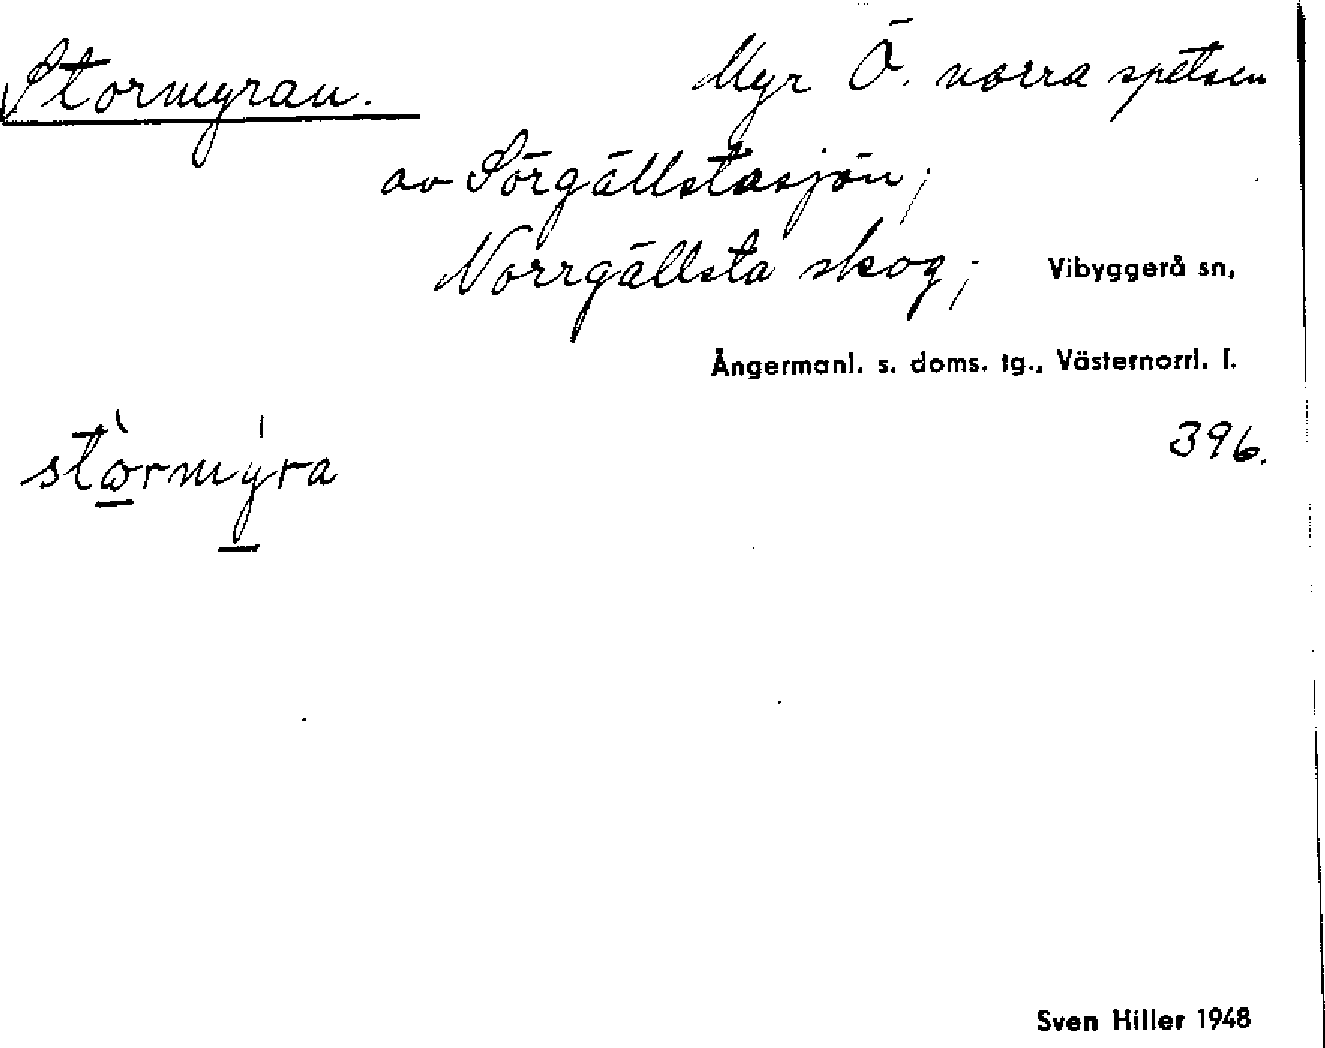 Stormyran.
Myr Ö. norra spetsen
av Sörgällstasjön;
Norrgällsta skog; Vibyggerå sn,
Ångermanl. s. doms. tg., Västernorrl. l.
396.
stòrmýra
Sven Hiller 1948